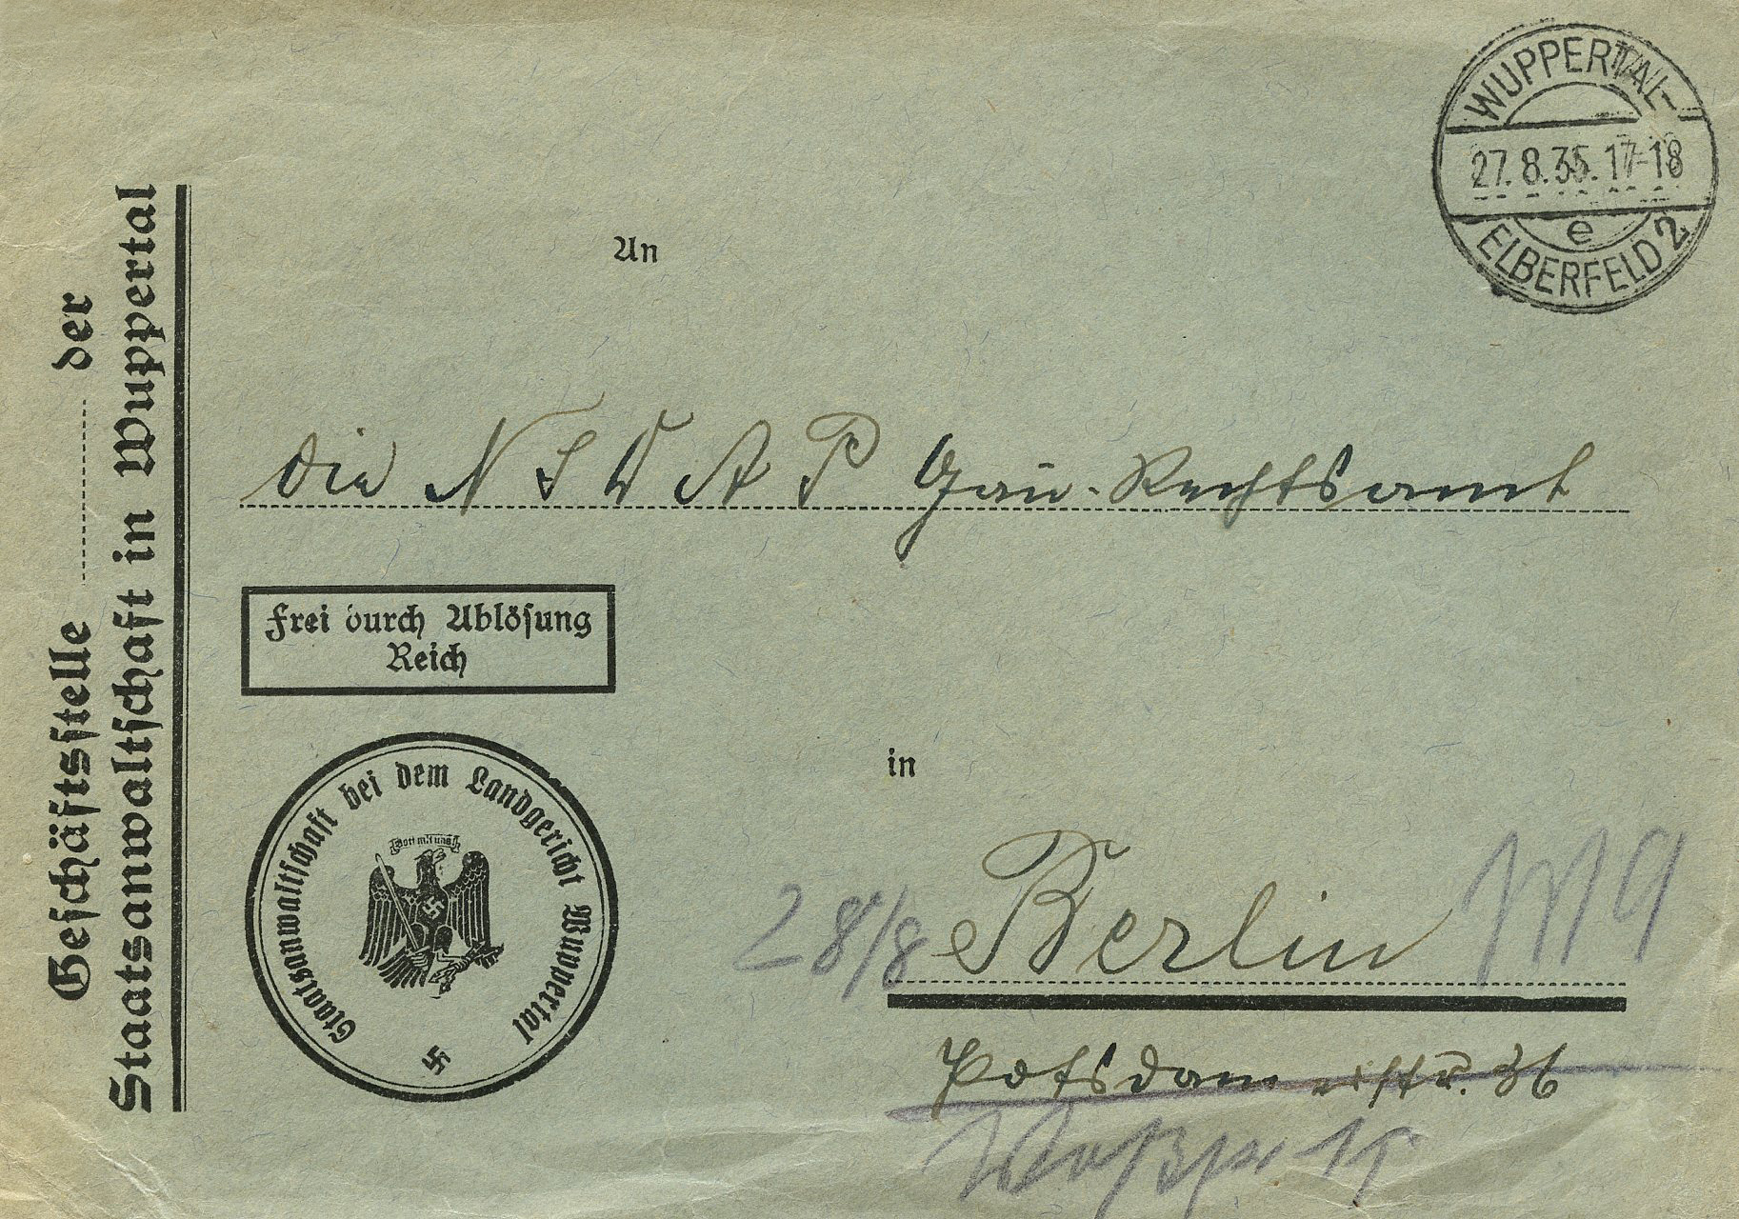 Geschäftsstelle ........ der
Staatsanwaltschaft in Wuppertal
WUPPERTAL-
27.8.35.17-18
e
ELBERFELD 2
An
die N S D A P Gau-Rechtsamt
Frei durch Ablösung
Reich
Staatsanwaltschaft bei dem Landgericht Wuppertal
Gott mit uns
in
28/8 Berlin W 9
Potsdamerstr. 36